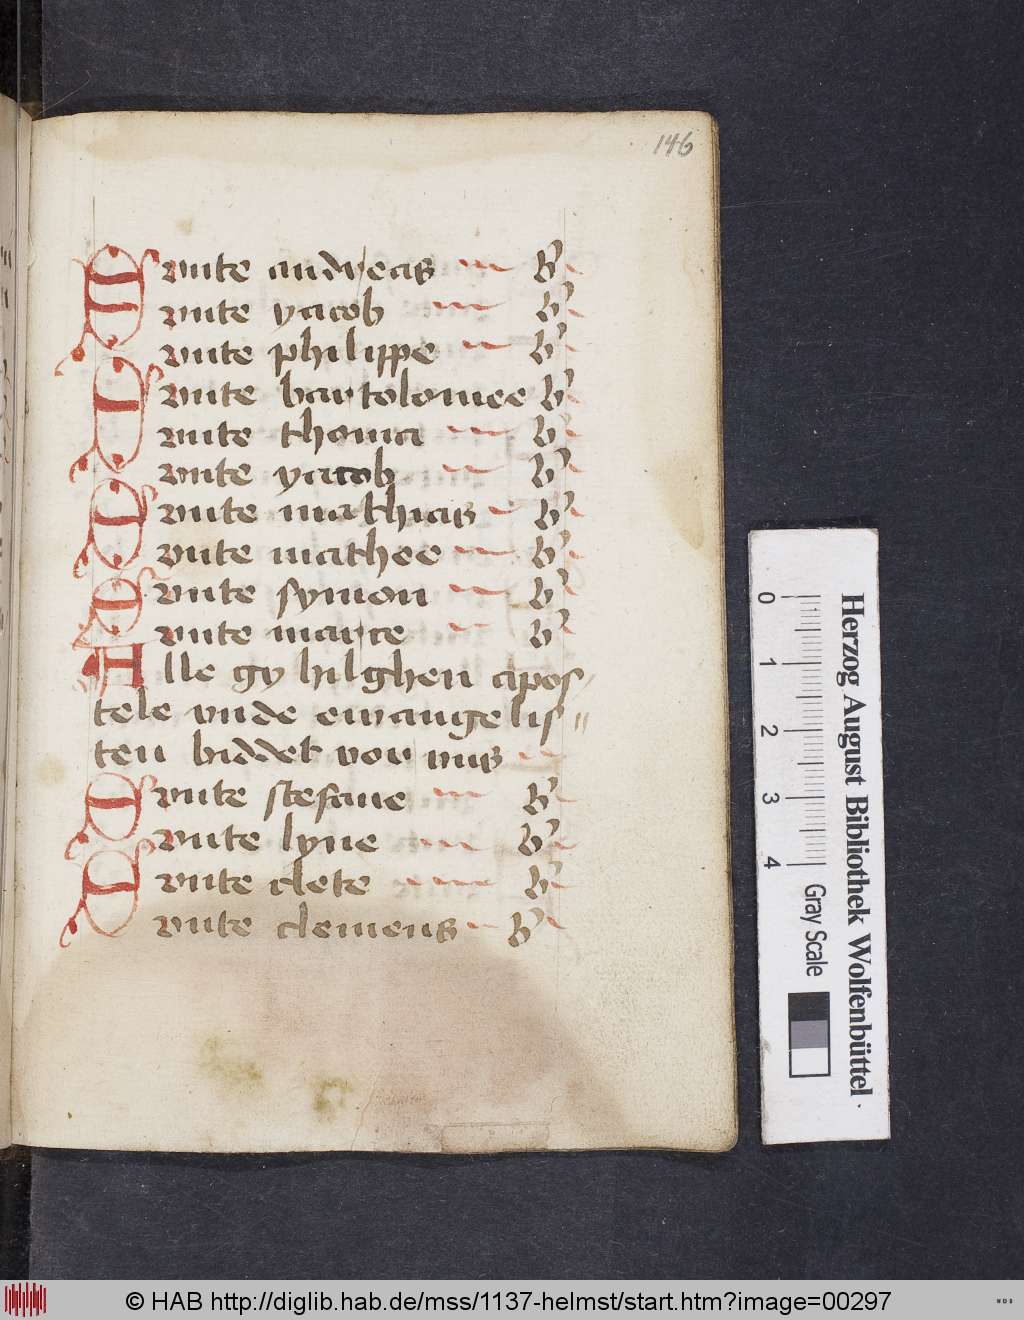 146
Sunte andreas B'
Sunte yacob B'
Sunte philippe B'
Sunte bartolomee B'
Sunte thoma B'
Sunte yacob B'
Sunte mathias B'
Sunte mathee B'
Sunte symon B'
Sunte marce B'
Alle gy hilghen apos
tele vnde ewangelis
ten biddet vor vns
Sunte stefane B'
Sunte lyne B'
Sunte clete B'
Sunte clemens B'
0 1 2 3 4
Gray Scale
Herzog August Bibliothek Wolfenbüttel
© HAB http://diglib.hab.de/mss/1137-helmst/start.htm?image=00297